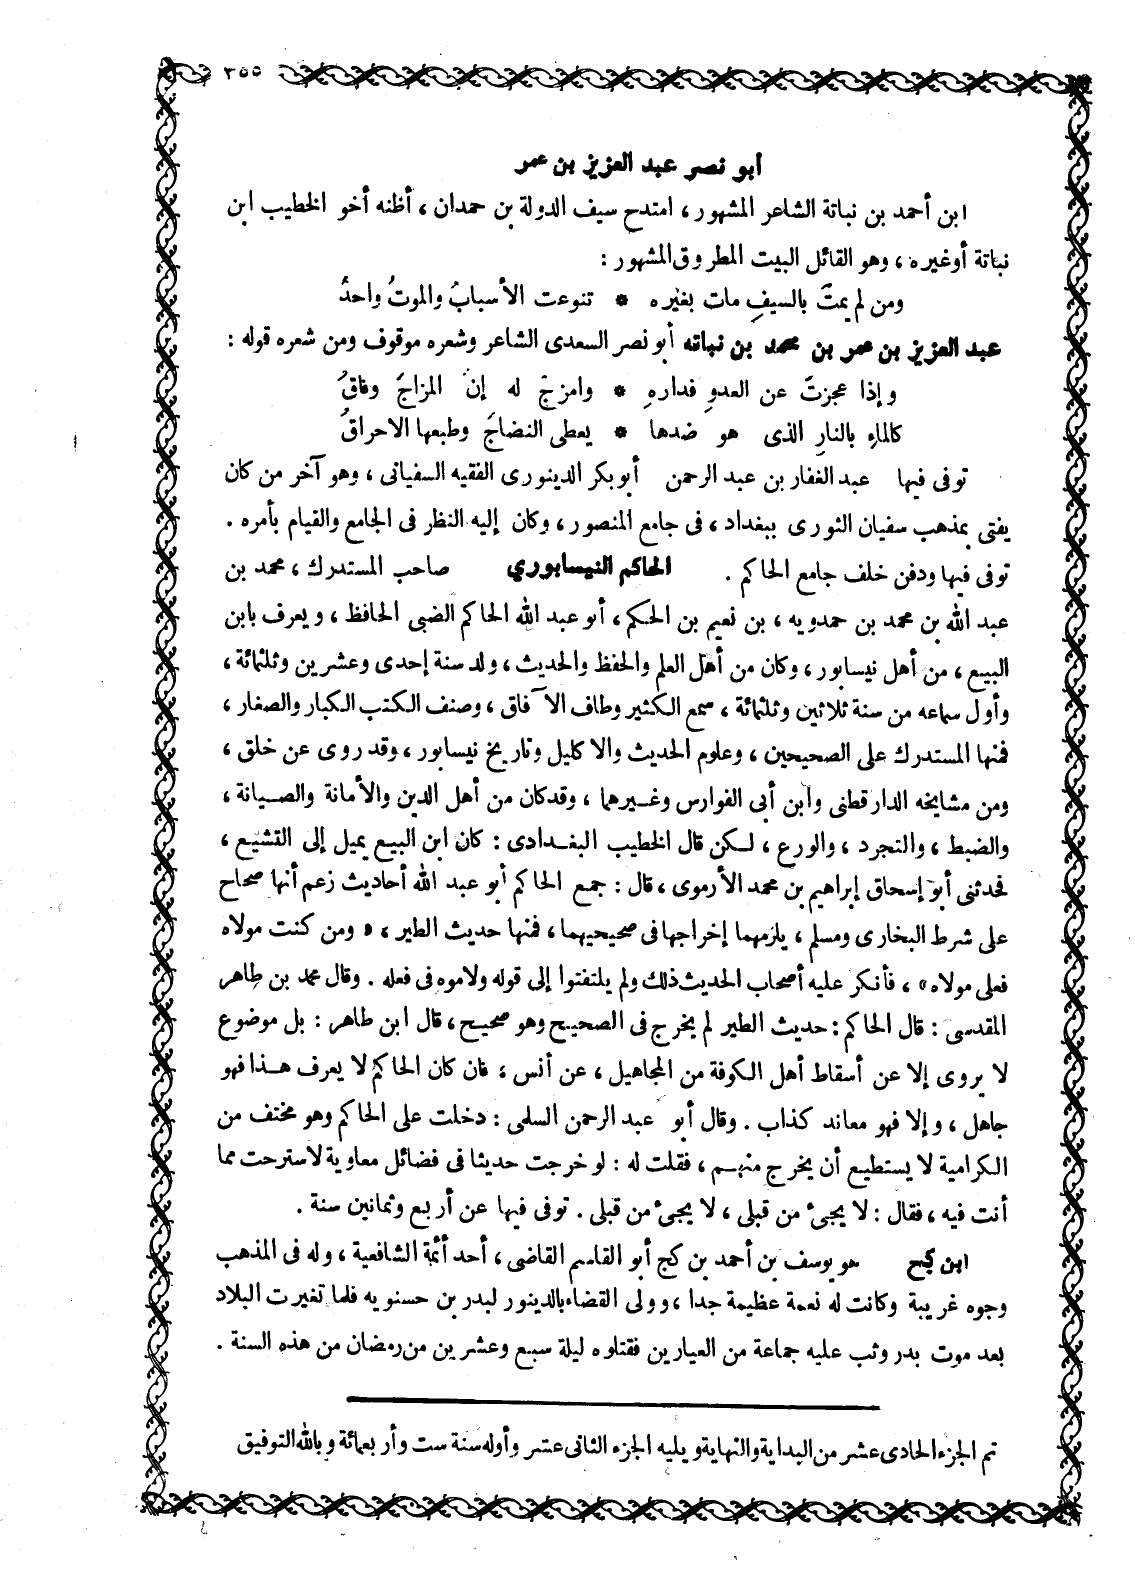 ٣٥٥
أبو نصر عبد العزيز بن عمر
ابن أحمد بن نباتة الشاعر المشهور، امتدح سيف الدولة بن حمدان، أظنه أخو الخطيب ابن
نباتة أوغيره، وهو القائل البيت المطروق المشهور:
ومن لم يمتَ بالسيفِ مات بغيره * تنوعت الأسبابُ والموتُ واحدُ
عبد العزيز بن عمر بن محمد بن نباته أبو نصر السعدى الشاعر وشعره موقوف ومن شعره قوله:
وإذا عجزتَ عن العدوِ فدارهِ * وامزجْ له إن المزاجَ وفاقُ
كالماءِ بالنارِ الذى هو ضدها * يعطى النضاجَ وطبعها الاحراقُ
توفى فيها عبد الغفار بن عبد الرحمن أبو بكر الدينورى الفقيه السفيانى، وهو آخر من كان
يفتى بمذهب سفيان الثورى ببغداد، فى جامع المنصور، وكان إليه النظر فى الجامع والقيام بأمره.
توفى فيها ودفن خلف جامع الحاكم. الحاكم النيسابوري صاحب المستدرك، محمد بن
عبد الله بن محمد بن حمدويه، بن نعيم بن الحكم، أبو عبد الله الحاكم الضبى الحافظ، ويعرف بابن
البيع، من أهل نيسابور، وكان من أهل العلم والحفظ والحديث، ولد سنة إحدى وعشرين وثلثمائة،
وأول سماعه من سنة ثلاثين وثلثمائة، سمع الكثير وطاف الآفاق، وصنف الكتب الكبار والصغار،
فمنها المستدرك على الصحيحين، وعلوم الحديث والاكليل وتاريخ نيسابور، وقد روى عن خلق،
ومن مشايخه الدارقطنى وابن أبى الفوارس وغيرهما، وقدكان من أهل الدين والأمانة والصيانة،
والضبط، والتجرد، والورع، لكن قال الخطيب البغدادى: كان ابن البيع يميل إلى التشيع،
فحدثنى أبو إسحاق إبراهيم بن محمد الأرموى، قال: جمع الحاكم أبو عبد الله أحاديث زعم أنها صحاح
على شرط البخارى ومسلم، يلزمهما إخراجها فى صحيحيهما، فمنها حديث الطير، «ومن كنت مولاه
فعلى مولاه»، فأنكر عليه أصحاب الحديث ذلك ولم يلتفتوا إلى قوله ولاموه فى فعله. وقال محمد بن طاهر
المقدسى: قال الحاكم: حديث الطير لم يخرج فى الصحيح وهو صحيح، قال ابن طاهر: بل موضوع
لا يروى إلا عن أسقاط أهل الكوفة من المجاهيل، عن أنس، فان كان الحاكم لا يعرف هذا فهو
جاهل، وإلا فهو معاند كذاب. وقال أبو عبد الرحمن السلمى: دخلت على الحاكم وهو مختف من
الكرامية لا يستطيع أن يخرج منهم، فقلت له: لو خرجت حديثا فى فضائل معاوية لاسترحت مما
أنت فيه، فقال: لا يجئ من قبلى، لا يجئ من قبلى. توفى فيها عن أربع وثمانين سنة.
ابن كج هو يوسف بن أحمد بن كج أبو القاسم القاضى، أحد أئمة الشافعية، وله فى المذهب
وجوه غريبة وكانت له نعمة عظيمة جدا، وولى القضاء بالدينور لبدر بن حسنويه فلما تغيرت البلاد
بعد موت بدر وثب عليه جماعة من العيارين فقتلوه ليلة سبع وعشرين من رمضان من هذه السنة.
تم الجزء الحادى عشر من البداية والنهاية ويليه الجزء الثانى عشر وأوله سنة ست وأربعمائة وبالله التوفيق